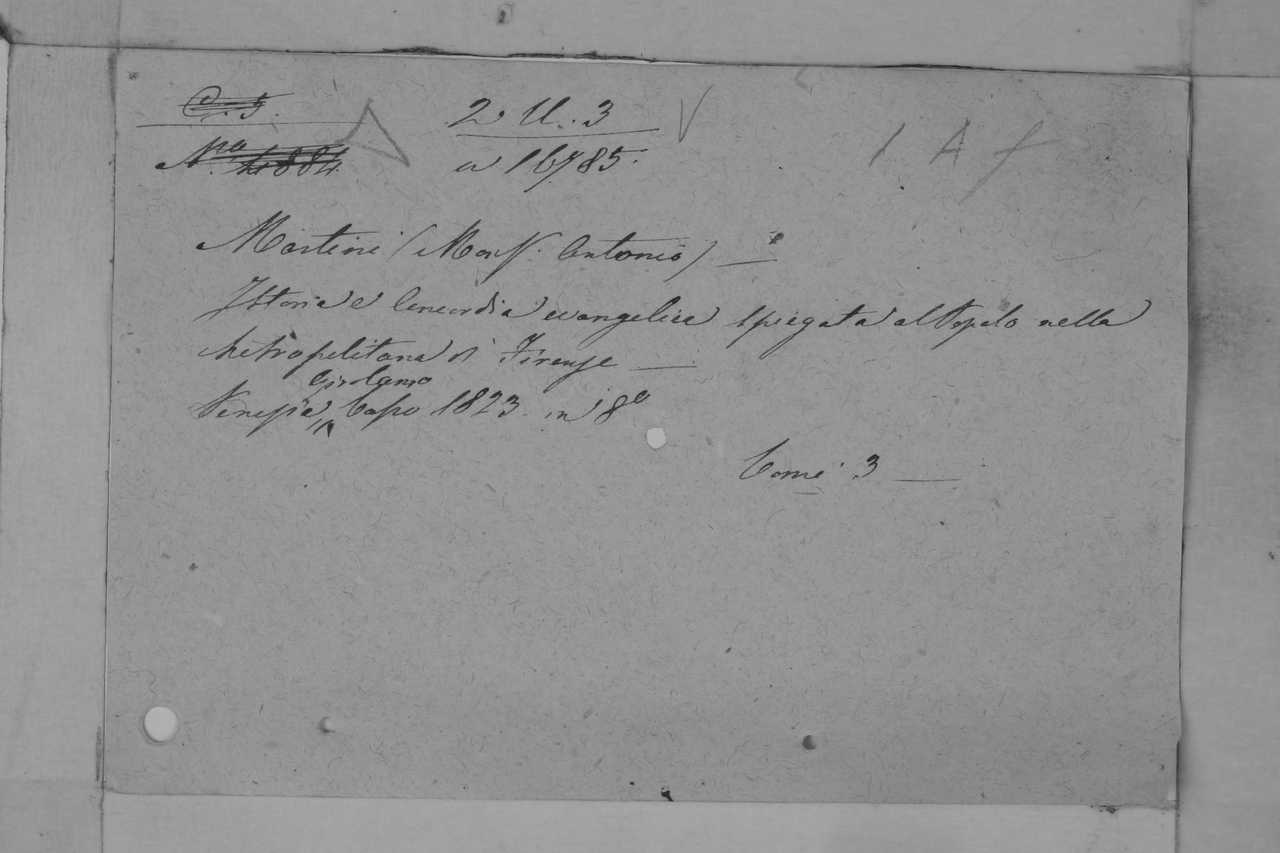 C. 5. 2. U. 3 V
N.ro 4884 a 16785. 1 A f
Martini (Mons. Antonio) —
Istoria e Concordia evangelica spiegata al Popolo nella
Metropolitana di Firenze —
Girolamo
Venezia, Tasso 1823. in 8º
Tomi 3 —